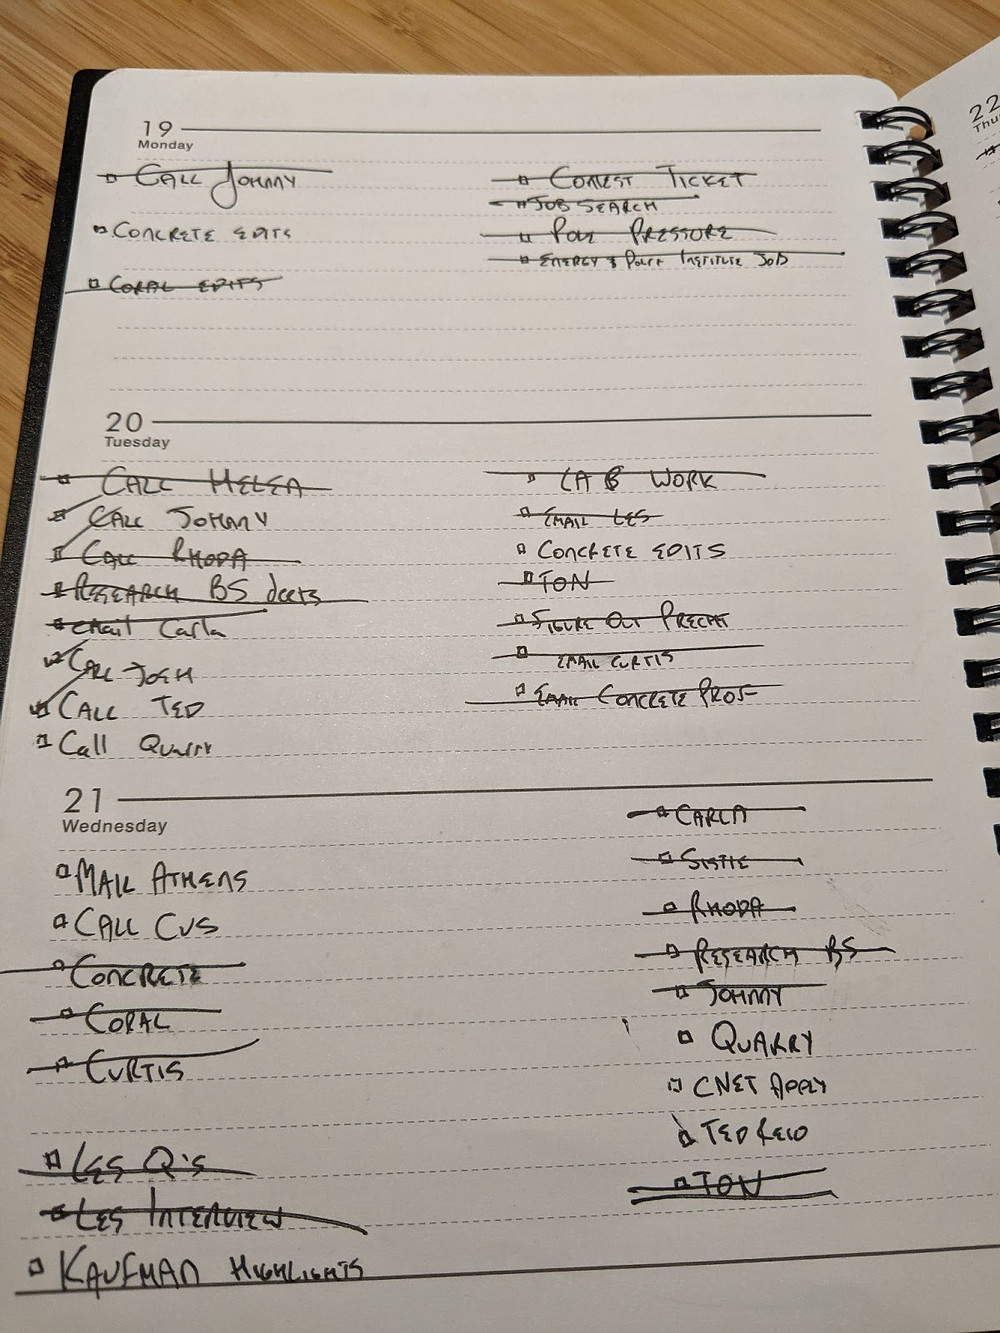 19
Monday
CALL JOHNNY
CONCRETE EDITS
CORAL EDITS
CONTEST TICKET
JOB SEARCH
PRESSURE
ENERGY & INSTITUTE JOB
20
Tuesday
CALL HELENA
CALL JOHNNY
CALL RHODA
RESEARCH BS deets
email Carla
CALL JOSH
CALL TED
Call Quarry
WORK
EMAIL LES
CONCRETE EDITS
TON
FIGURE OUT
EMAIL CURTIS
EMAIL CONCRETE PROF
21
Wednesday
MAIL ATHENS
CALL CVS
CONCRETE
CORAL
CURTIS
LES Q'S
LES INTERVIEW
KAUFMAN HIGHLIGHTS
CARLA
RHODA
RESEARCH BS
JOHNNY
QUARRY
CNET APPLY
TED REID
TON
22
Thu